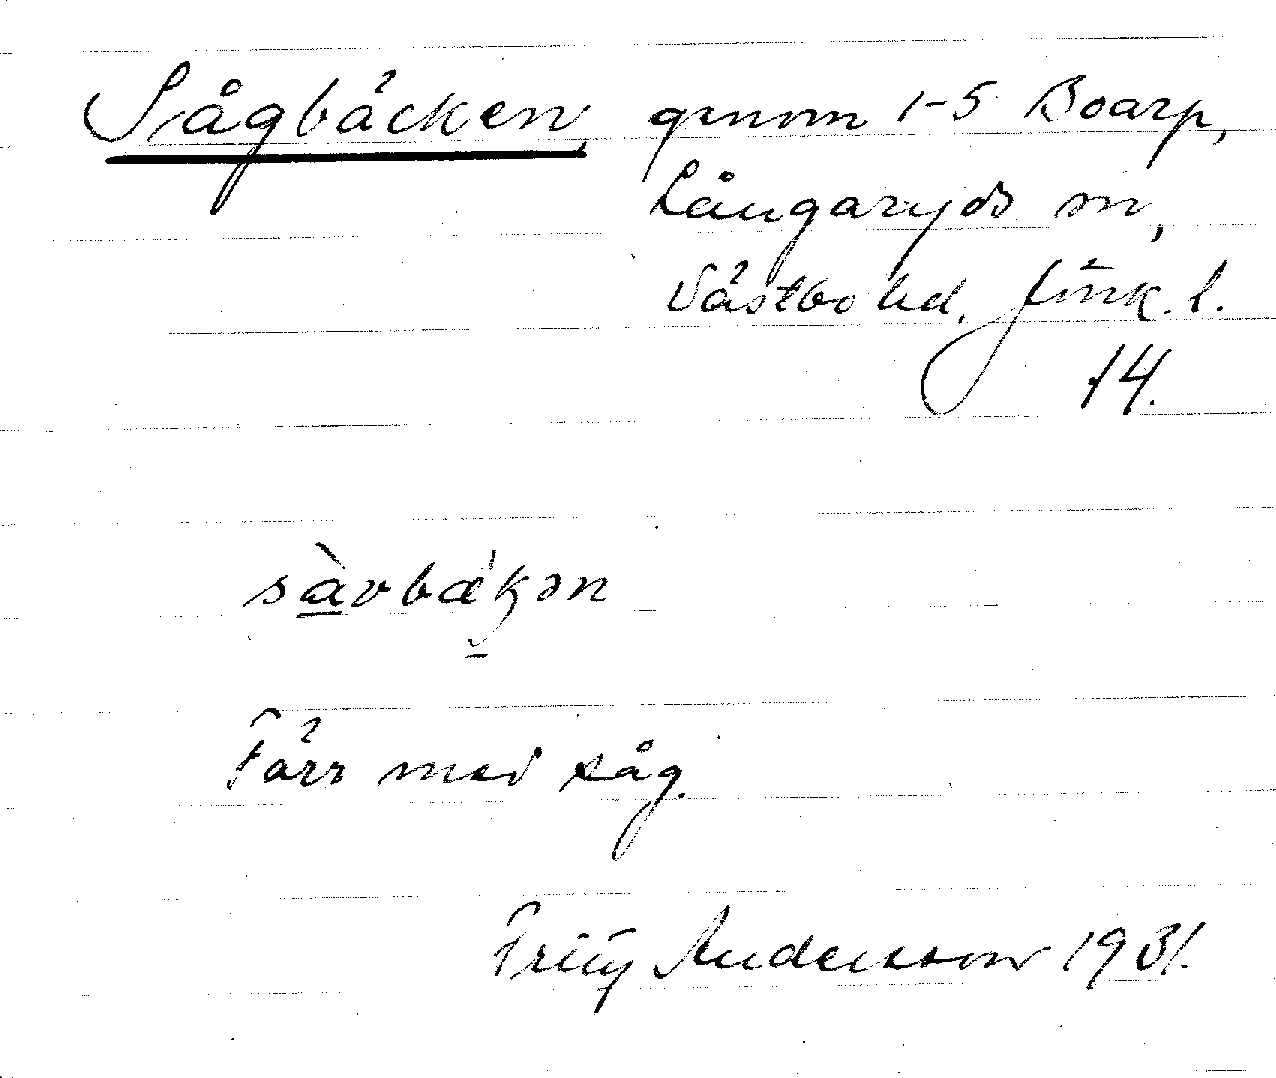 Sågbäcken, genom 1-5 Boarp,
Långaryds sn,
Västbo hd. Jönk. l.
14.
sàvbæ̀ḱən
Färr med såg.
Fritz Andersson 1931.